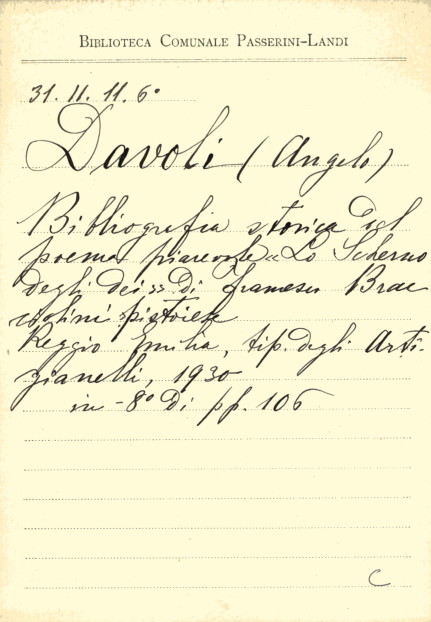 BIBLIOTECA COMUNALE PASSERINI-LANDI
31. 11. 11. 6°
Davoli (Angelo)
Bibliografia storica del
poema piacevole «Lo Scherno
degli dei» di Francesco Brac
ciolini pistoiese
Reggio Emilia, tip. degli Arti-
gianelli, 1930
in-8° di pp. 106
C